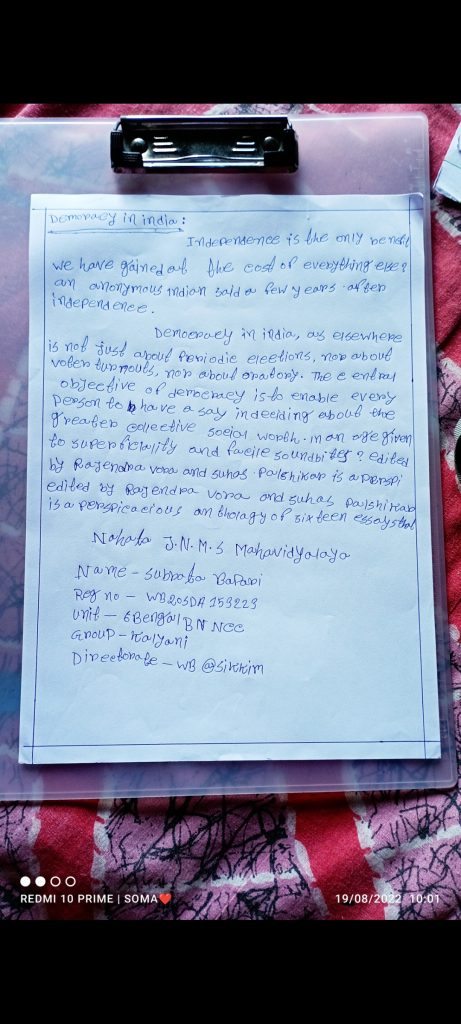 Democracy in india:
Independence is the only benefit
we have gained at the cost of everything else?
an anonymous indian said a few years after
independence.
Democracy in india, as elsewhere
is not just about Periodic elections, nor about
voter turnouts, nor about oratory. The c entral
objective of democracy is to enable every
person to have a say in deciding about the
greater collective social worth. in an age given
to superficiality and facile soundbites? edited
by Rajendra vora and suhas Palshikar is a perspi
edited by Rajendra vora and suhas Palshikar
is a perspicacious anthology of sixteen essays that
Nahata J.N.M.S Mahavidyalaya
Name - Subrata Bapari
Reg no - WB20SDA 153223
Unit - 6 Bengal BN NCC
Group - Kalyani
Directorate - WB @ Sikkim
REDMI 10 PRIME | SOMA❤️
19/08/2022 10:01